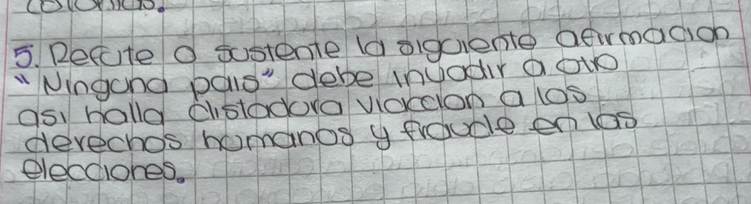 5. Refute o sustente la siguiente afirmacion
"Ninguna pais" debe invadir a otro
asi halla distadora viaccion a los
derechos homanos y fraude en las
elecciones.